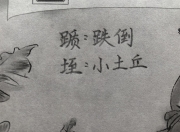 踬:跌倒
垤:小土丘